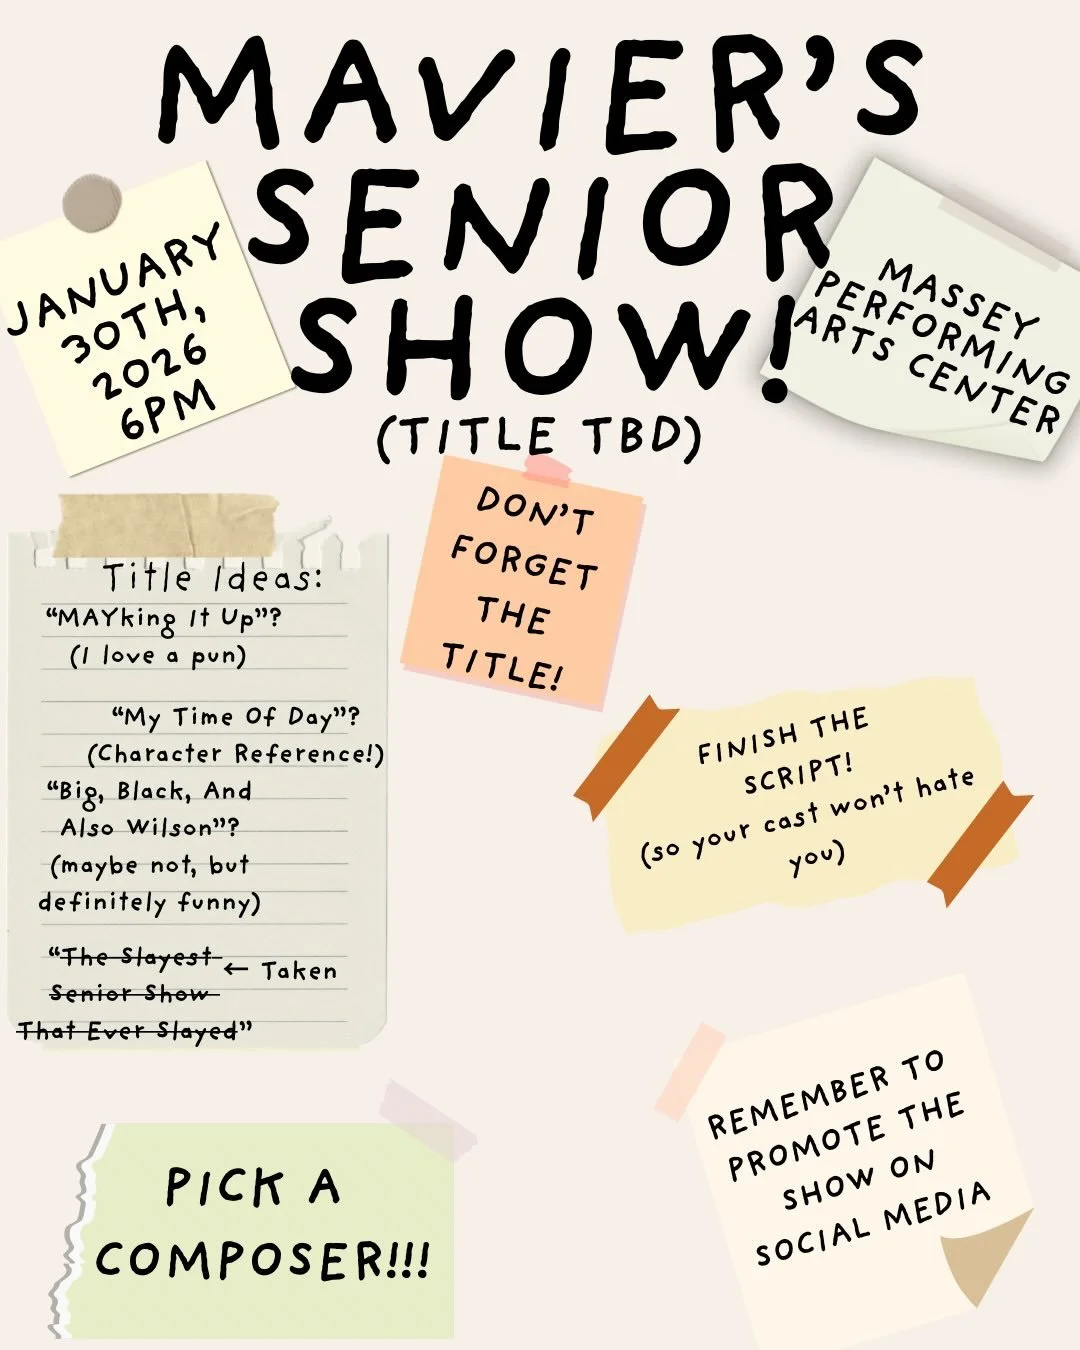 MAVIER'S
SENIOR
SHOW!
(TITLE TBD)
JANUARY
30TH,
2026
6PM
MASSEY
PERFORMING
ARTS CENTER
DON'T
FORGET
THE
TITLE!
Title Ideas:
"MAYking It Up"?
(I love a pun)
"My Time Of Day"?
(Character Reference!)
"Big, Black, And
Also Wilson"?
(maybe not, but
definitely funny)
"The Slayest
← Taken
Senior Show
That Ever Slayed"
FINISH THE
SCRIPT!
(so your cast won't hate
you)
PICK A
COMPOSER!!!
REMEMBER TO
PROMOTE THE
SHOW ON
SOCIAL MEDIA